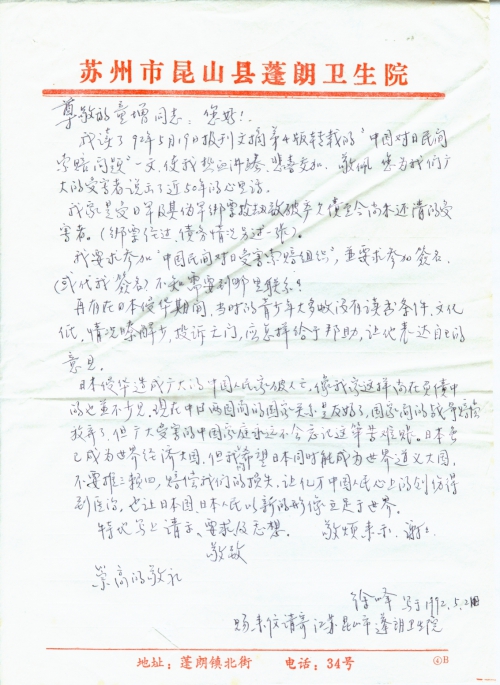 苏州市昆山县蓬朗卫生院
尊敬的童增同志：您好！
我读了92年5月19日报刊文摘第4版转载的"中国对日民间
索赔问题"一文，使我热血沸腾、悲喜交加，敬佩您为我们广
大的受害者说出了近50年的心里话。
我家是受日军及其伪军绑票拉劫致破产欠债至今尚未还清的受
害者。（绑票经过、债务情况另述一张）。
我要求参加"中国民间对日受害索赔组织"，并要求参加签名，
（或代我签名）不知需要到哪里联系？
再有在日本侵华期间，当时的青少年大多数没有读书条件，文化
低，情况了解少，投诉无门，应怎样给予帮助，让他表达自己的
意见。
日本侵华造成广大的中国人民家破人亡，像我家这样尚在负债中
的也并不少见。现在中日两国间的国家关系是友好了，国家间的战争赔偿
放弃了，但广大受害的中国家庭永远不会忘记这笔苦难账。日本
已成为世界经济大国，但我希望日本同时能成为世界道义大国，
不要推三赖四，赔偿我们的损失，让亿万中国人民心上的创伤得
到医治，也让日本国、日本人民以新的形像立足于世界。
特此写上请示、要求及感想。 敬烦来示，谢谢
敬致
崇高的敬礼
徐峰 写于1992.5.21日
赐来信请寄江苏昆山市蓬朗卫生院
地址：蓬朗镇北街 电话：34号 ④B